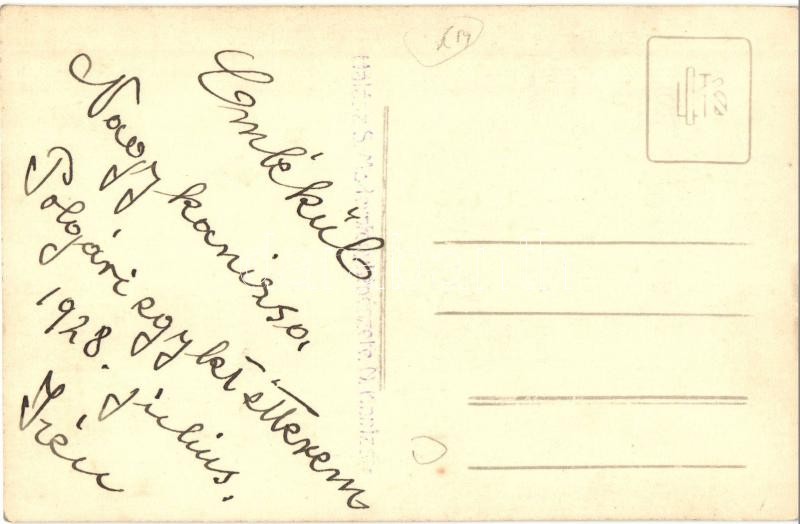 Emlékül
Nagykanizsa
Polgári egylet étterem
1928. július.
Irén